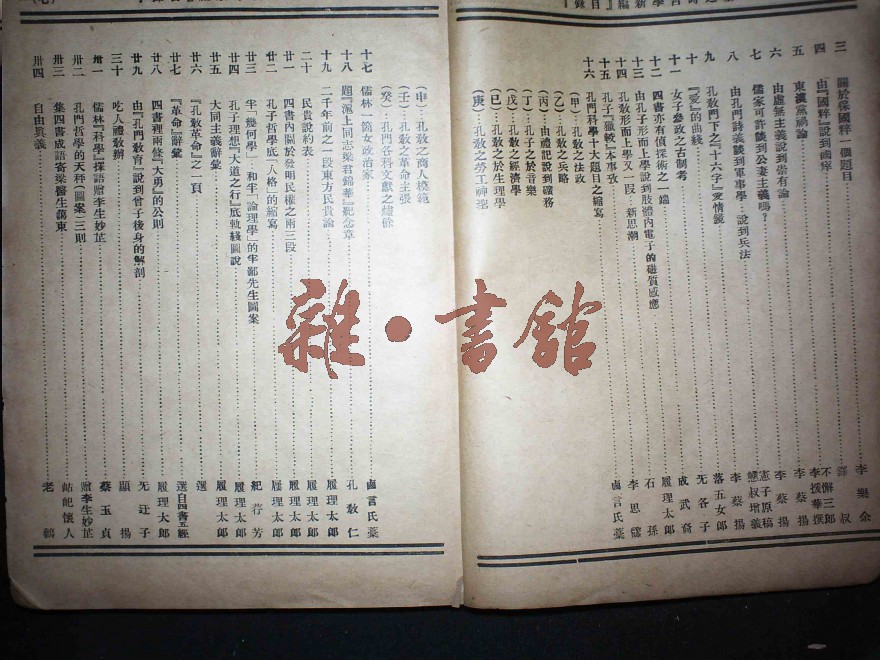 三 關於保國粹一個題目 李樂余
四 由『國粹』說到國瘁 釋叔
五 東漢黨禍論 不懈三郎
六 由虛無主義說到崇有論 李援華撰
七 儒家可許談到公妻主義嗎? 李蔡揚
八 由孔門詩義談到軍事學—說到兵法 李蔡揚
九 孔敎門下之『十六字』愛情鏡
十 『愛』的曲綫 李蔡揚
十一 女子參政之古制考 落五女郎
十二 四書亦有偵探術之一端 成武裔
十三 由孔子形而上學說到肢體內電子的磁質感應 履理太郎
十四 孔敎形而上學又一段…新思潮 石孫
十五 孔子『獵較』本事攷 李思
十六 孔門科學十大題目之縮寫 鹵言氏藁
(甲)…孔敎之法政
(乙)…孔敎之兵略
(丙)…由禮記說到礦務
(丁)…孔子之於音樂
(戊)…孔敎之經濟學
(巳)…孔敎之於生理學
(庚)…孔敎之勞工神聖
(壬)…孔敎之革命主張
(癸)…孔門各科文獻之
十七 儒林一箇女政治家 鹵言氏藁
十八 題『滬上同志梁君錦華』紀念章 孔敎仁
十九 二千年前之一段東方民貴論 履理太郎
二十 民貴說約表 履理太郎
廿一 四書內關於發明民權之兩三段 履理太郎
廿二 孔子哲學底『人格』的縮寫 履理太郎
廿三 芳
廿四 孔子理想『大道之行』底軌綫圖說 履理太郎
廿五 大同主義辭彙 履理太郎
廿六 『孔敎革命』之一頁 選
廿七 『革命』辭彙 選自四書五經
廿八 四書裡兩條『大勇』的公則 履理太郎
廿九 由『孔門敎育』說到曾子後身的解剖 无迂子
三十 吃人禮敎辦 顯揚
卅一 儒林『科學』探語贈李生妙芷 蔡玉貞
卅二 孔門哲學的天秤(圖案)三則 贈李生妙芷
卅三 集四書成語寄梁醫生藹東 岵屺懷人
卅四 自由眞義 老鶴
雜·書館